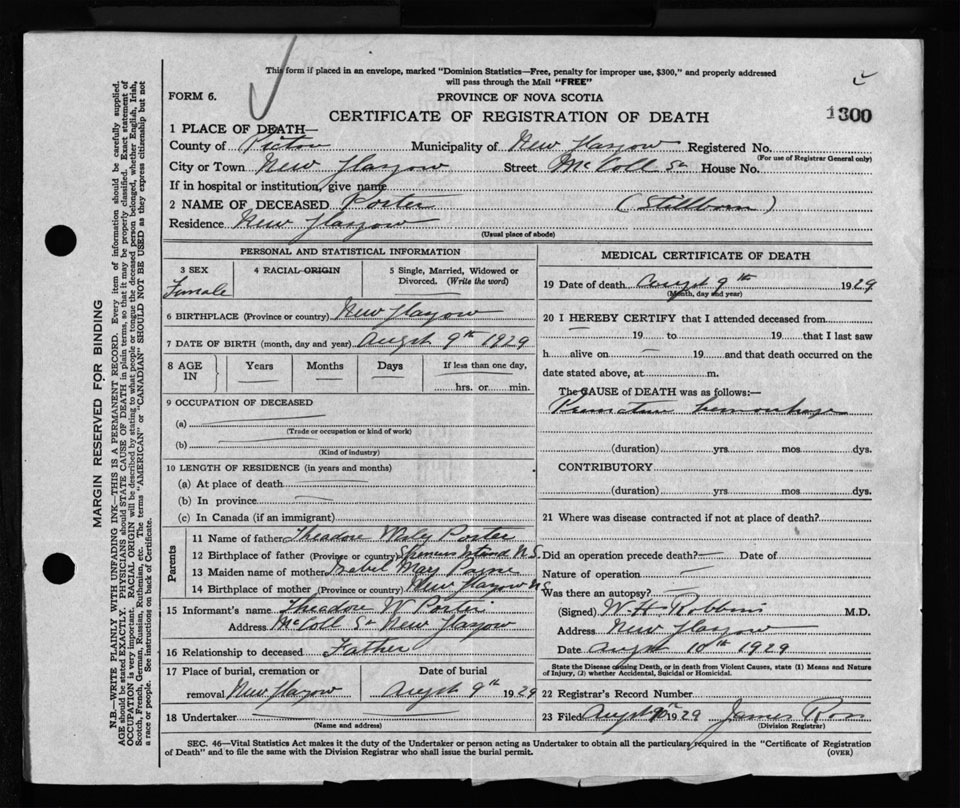 This form if placed in an envelope, marked "Dominion Statistics—Free, penalty for improper use, $300," and properly addressed
will pass through the Mail "FREE"
FORM 6.
PROVINCE OF NOVA SCOTIA
CERTIFICATE OF REGISTRATION OF DEATH
1300
1 PLACE OF DEATH—
County of Pictou Municipality of New Glasgow Registered No.
(For use of Registrar General only)
City or Town New Glasgow Street McColl St House No.
If in hospital or institution, give name
2 NAME OF DECEASED Porter (Stillborn)
Residence New Glasgow
(Usual place of abode)
PERSONAL AND STATISTICAL INFORMATION
3 SEX 4 RACIAL ORIGIN 5 Single, Married, Widowed or
Divorced. (Write the word)
Female
6 BIRTHPLACE (Province or country) New Glasgow
7 DATE OF BIRTH (month, day and year) Augst 9th 1929
8 AGE IN Years Months Days If less than one day,
hrs. or min.
9 OCCUPATION OF DECEASED
(a)
(Trade or occupation or kind of work)
(b)
(Kind of industry)
10 LENGTH OF RESIDENCE (in years and months)
(a) At place of death
(b) In province
(c) In Canada (if an immigrant)
Parents
11 Name of father Theadore Porter
12 Birthplace of father (Province or country) Spencers Island N.S.
13 Maiden name of mother Isabel May Payne
14 Birthplace of mother (Province or country) New Glasgow N.S.
15 Informant's name Theadore W Porter
Address McColl St New Glasgow
16 Relationship to deceased Father
17 Place of burial, cremation or Date of burial
removal New Glasgow Augst 9th 1929
18 Undertaker
(Name and address)
MEDICAL CERTIFICATE OF DEATH
19 Date of death Augst 9th 1929
(Month, day and year)
20 I HEREBY CERTIFY that I attended deceased from
19 to 19 that I last saw
h alive on 19 and that death occurred on the
date stated above, at m.
The CAUSE of DEATH was as follows:—
Premature hemorrhage
(duration) yrs mos dys.
CONTRIBUTORY
(duration) yrs mos dys.
21 Where was disease contracted if not at place of death?
Did an operation precede death? — Date of
Nature of operation
Was there an autopsy?
(Signed) W. H. Robbins M.D.
Address New Glasgow
Date Augst 10th 1929
State the Disease causing Death, or in death from Violent Causes, state (1) Means and Nature
of Injury, (2) whether Accidental, Suicidal or Homicidal.
22 Registrar's Record Number
23 Filed Augst 1929 James Ross
(Division Registrar)
SEC. 46—Vital Statistics Act makes it the duty of the Undertaker or person acting as Undertaker to obtain all the particulars required in the "Certificate of Registration
of Death" and to file the same with the Division Registrar who shall issue the burial permit.
(OVER)
MARGIN RESERVED FOR BINDING
N.B.—WRITE PLAINLY WITH UNFADING INK—THIS IS A PERMANENT RECORD. Every item of information should be carefully supplied.
AGE should be stated EXACTLY. PHYSICIANS should STATE CAUSE OF DEATH in plain terms, so that it may be properly classified. Exact statement of
OCCUPATION is very important. RACIAL ORIGIN will be described by stating to what people or tongue the deceased person belonged, whether English, Irish,
Scotch, French, German, Russian, Ruthenian, etc. The terms "AMERICAN" or "CANADIAN" SHOULD NOT BE USED as they express citizenship but not
a race or people. See instructions on back of Certificate.